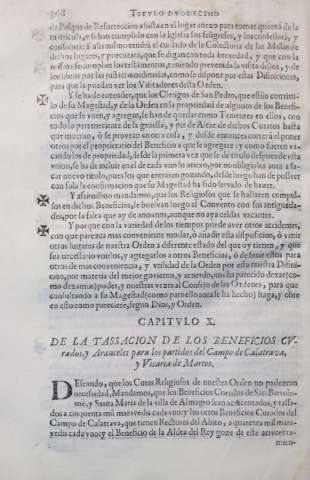 368 TITVLO DVODECIMO
de Pasqua de Resurreccion assista en el lugar anexo para tomar quenta de la
matricula, y si han cumplido con la Iglesia sus feligreses, y los confessarà, y
consolarà: Y assimismo tendrà el cuidado de la Colecturia de las Missas de
dichos lugares, y procurarà, que se digan con toda brevedad, y que con la
misma se cumplan los testamentos, siendo prevenida la visita dellos, y de
los libros por las justicias ordinarias, como se dispone por estas Difiniciones,
para que la puedan ver los Visitadores desta Orden.
Y se ha de entender, que los Clerigos de San Pedro, que estàn con titulo
de su Magestad, y de la Orden en la propiedad de algunos de los Beneficios
que se vnen, y agregan, se han de quedar como Tenientes en ellos, con
todo lo perteneciente de la gruessa, y pie de Altar de dichos Curatos hasta
que mueran, ò se provean en otra cosa, y desde entonces correrà el poner
otros por el propietario del Beneficio a que se agregare
da los de propiedad, desde la primera vez que
vnion, se ha de incluir en el de cada vno lo anexo, por no obligarlos aora a sacar
nuevo titulo, pues los que entraren gozando, desde luego han de posseer
con sola la confirmacion que su Magestad ha sido servido de hazer.
Y assimismo mandamos, que los Religiosos que se hallaren compulsos
en dichos Beneficios, se buelvan luego al Convento con sus antiguedades,
por la falta que ay de ancianos, aunque no aya celdas vacantes.
Y porque con la variedad de los tiempos puede aver otros accidentes,
con que parezca mas conveniente mudar, ò añadir esta disposicion, ò venir
otros lugares de nuestra Orden a diferente estado del que oy tienen, y que
sea necessario vnirlos, y agregarlos a otros Beneficios, ò desunir estos para
otros de mas conveniencia, y vtilidad de la Orden por esta nuestra Difinicion,
por materia del mejor govierno, y acuerdo, nos ha parecido dexar (como
dexamos) poder, y nuestras vezes al Consejo de las Ordenes, para que
consultando a su Magestad (como para ello aora se ha hecho) haga, y obre
en esto como pareciere, segun Dios, y Orden.
CAPITVLO X.
DE LA TASSACION DE LOS BENEFICIOS CV-
rados, y Aranceles para los partidos del Campo de Calatrava,
y Vicaria de Martos.
DEseando, que los Curas Religiosos de nuestra Orden no padezcan
necessidad, Mandamos, que los Beneficios Curados de San Bartolome,
y Santa Maria de la villa de Almagro sean acrecentados, y tassados
a cinquenta mil maravedis cada vno: y los otros Beneficios Curados del
Campo de Calatrava, que tienen Rectores del Abito, a quarenta mil maravedis
cada vno: y el Beneficio de la Aldea del Rey goze de este acrecenta-
mien-